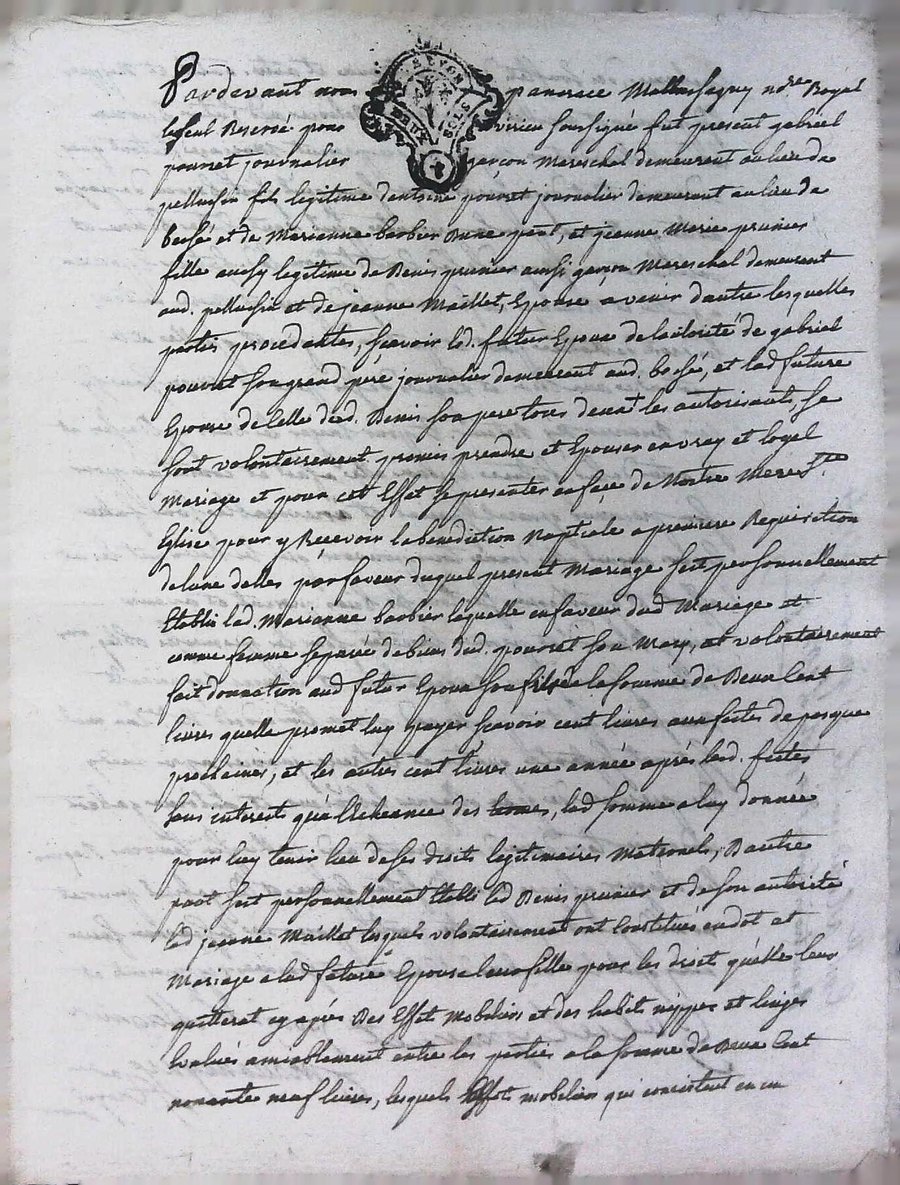 Pardevant nous pancrace Mallassagny no.re Royal
le seul Reservé pour virieu soussigné fut present gabriel
pourret journalier garçon Mareschal demeurant au lieu de
pellussin fils legitime d'antoine pourret journalier demeurant au lieu de
bessé et de Marianne barbier D'une part, et jeanne Marie prunier
fille aussy legitime de Denis prunier aussi garson Mareschal demeurant
aud. pellussin et de jeanne Maillet, Epouse a venir d'autre lesquelles
parties procedantes, scavoir led. futur Epoux de lautorité de gabriel
pourret son grand pere journalier demeurant aud. bessé, et lad future
Epouse de celle dud. Denis son pere tous deux les autorisants, se
sont volontairement promis prendre et Epouser en vray et legal
Mariage et pour cet Effet se presenter en face de Nostre Mere Ste
Eglise pour y Recevoir la benediction Nuptiale a premiere Requisition
de lune delles par faveur duquel present Mariage s'est personnellement
Etablie lad. Marianne barbier laquelle en faveur dud Mariage et
comme femme separée de biens dud. pourret son Mary, et volontairement
fait donnation aud futur Epoux son fils de la somme de Deux Cent
livres quelle promet luy payer scavoir cent livres aux festes de pasque
prochaines, et les autres cent livres une année aprés lesd. festes
sans interests qu'a l'Echeance des lad somme a luy donnée
pour luy tenir lieu de ses droits legitimaires Maternels, D'autre
part s'est personnellement Etabli led Denis prunier et de son autorité
lad jeanne Maillet lesquels volontairement ont Constitués en dot et
Mariage a lad future Epouse leur fille pour les droit qu'elle leur
quitterat cy aprés Des Effet Mobiliers et des habits nippes et linges
Evalués amiablement entre les parties a la somme de Deux Cent
nonante neuf livres, lesquels Effets mobiliers qui consistent en un
DEUX SOLS